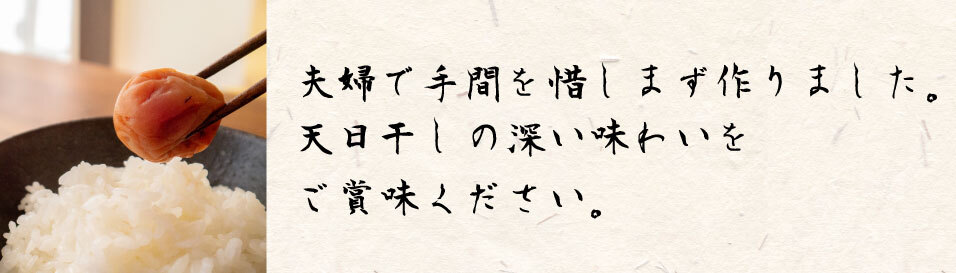 夫婦で手間を惜しまず作りました。
天日干しの深い味わいを
ご賞味ください。